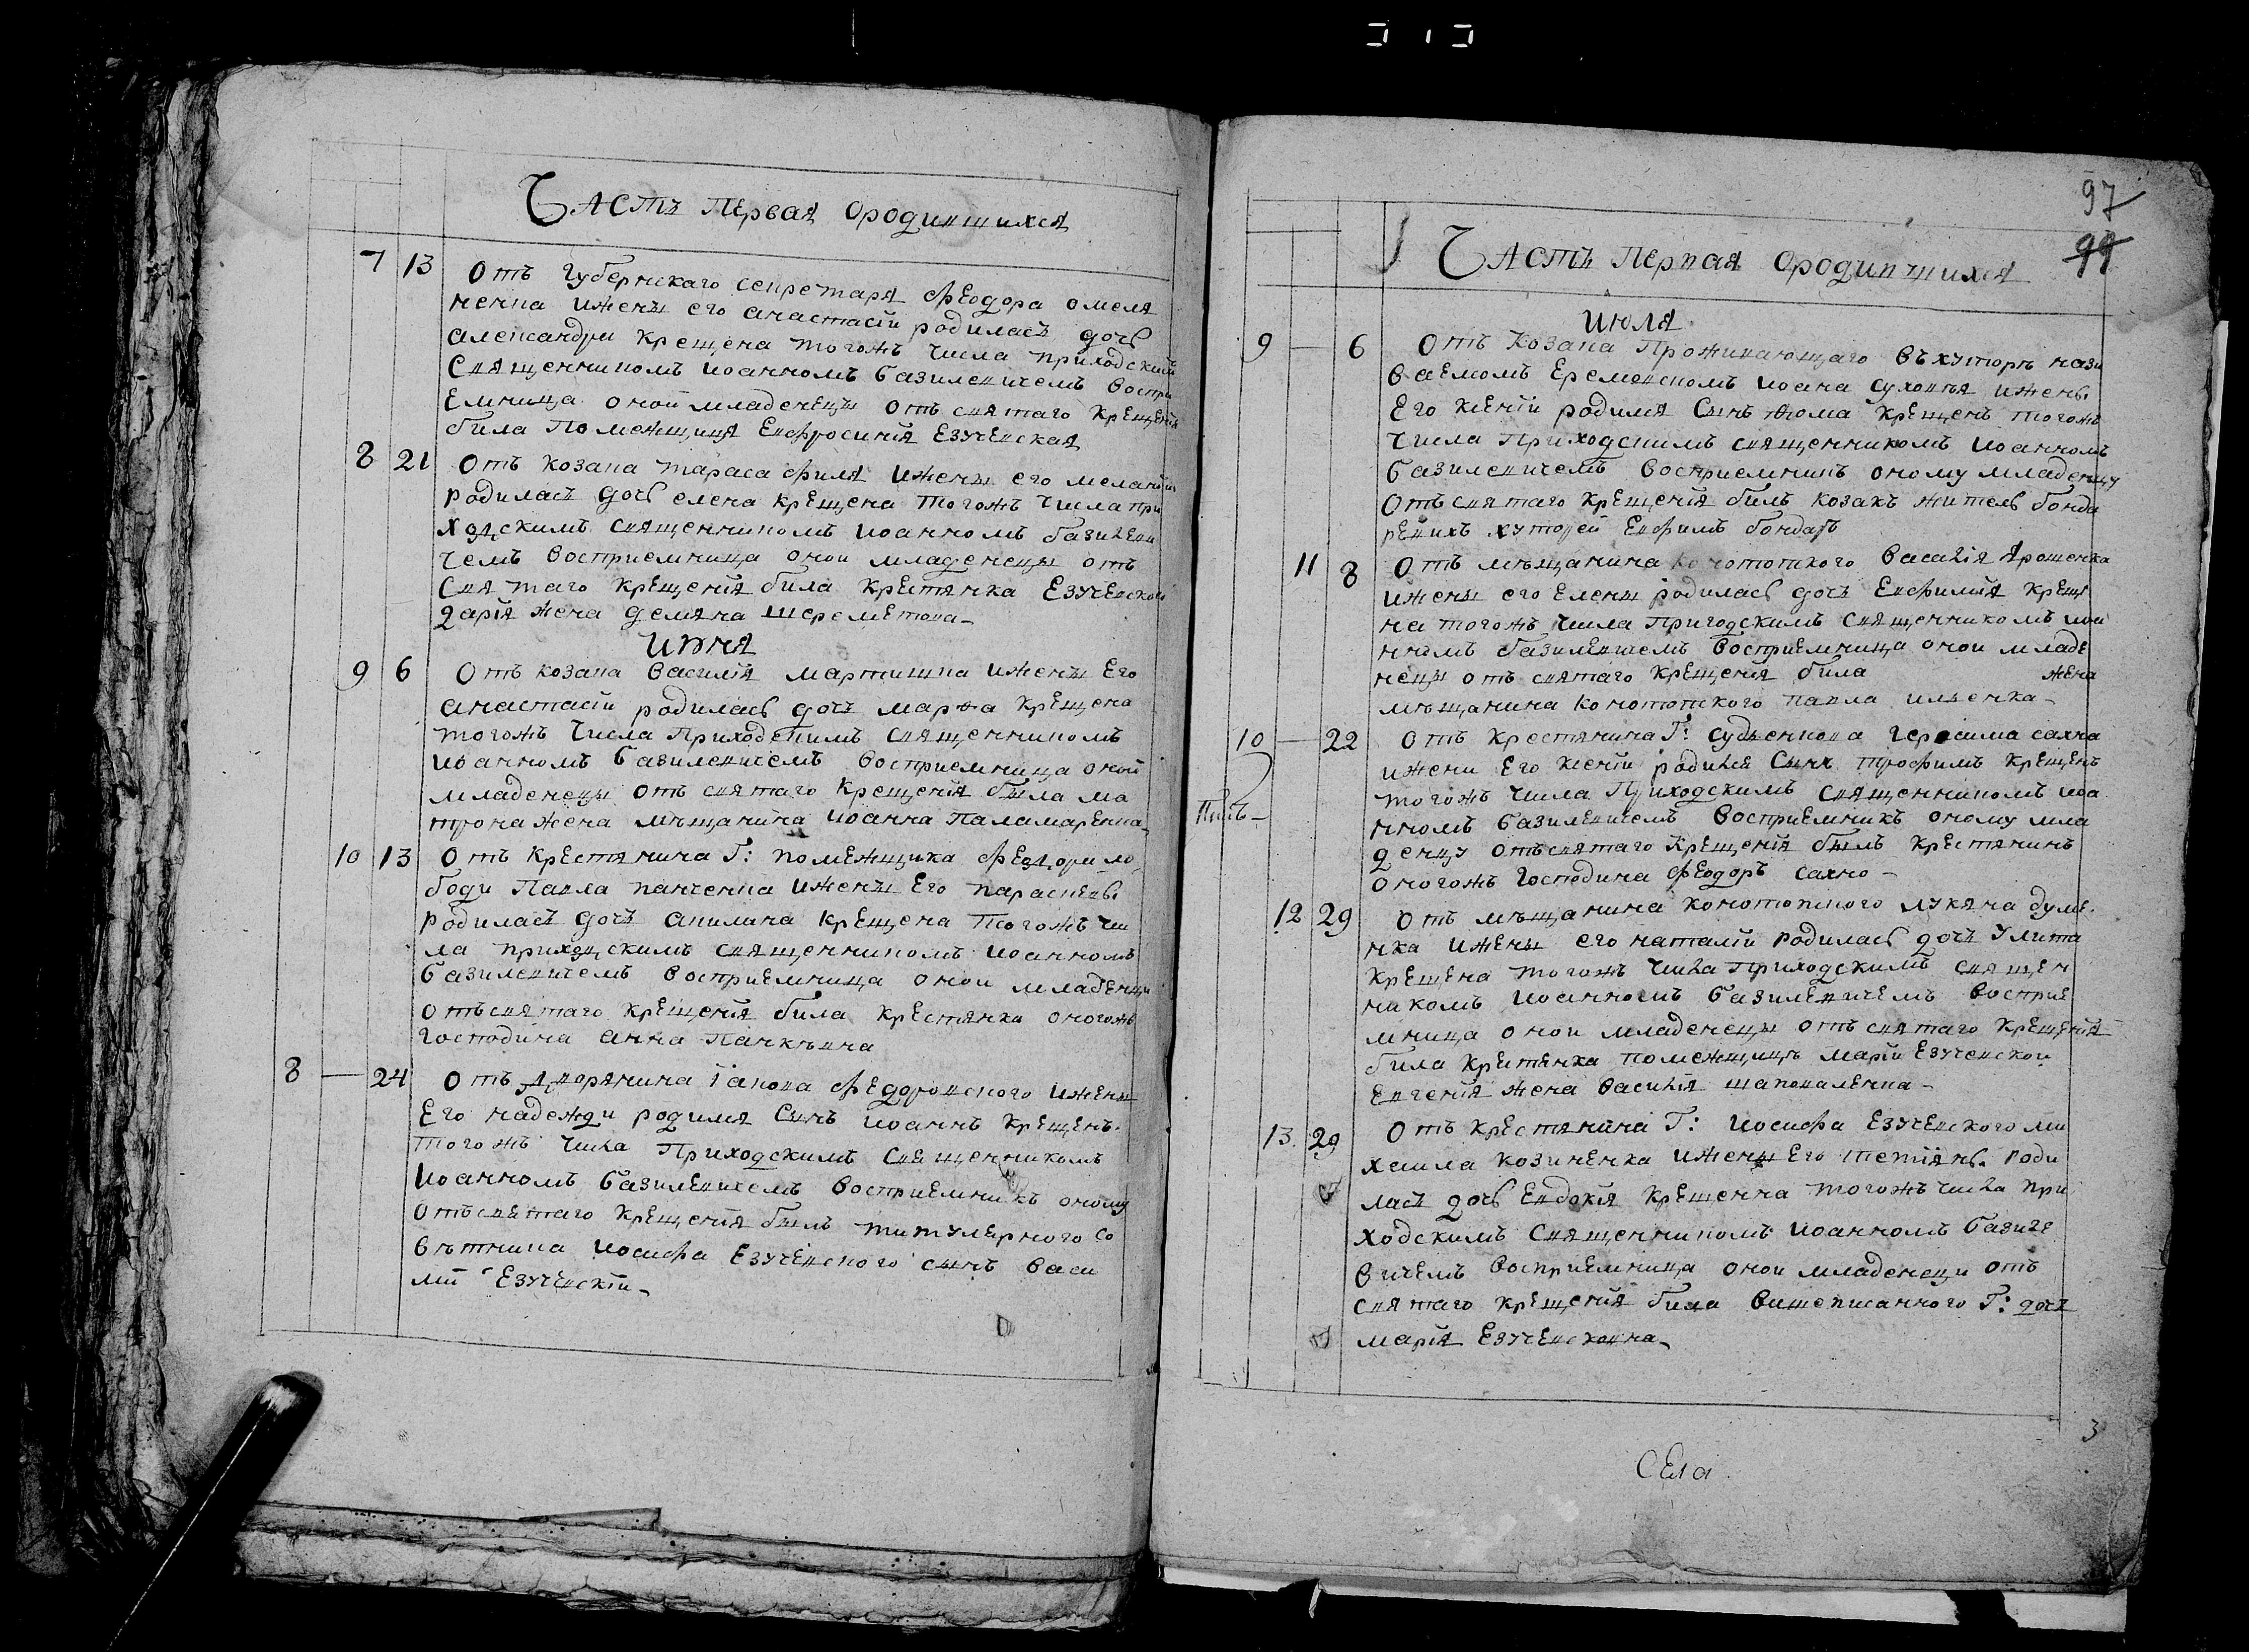 Часть Первая Ородившихся
7 13 Отъ Губернскаго секретаря Феодора омеля
ненка ижены его анастасіи родиласъ дочь
александри крещена тогожъ числа приходскимъ
Священникомъ иоанномъ базилевичемъ воспри
емница оной младенецы отъ святаго крещенія
била Помежщиця Ефросинія Езучевская
8 21 Отъ козака тараса филя ижены его меланіи
родиласъ дочь елена крещена тогожъ числа при
ходскимъ священникомъ иоанномъ базилеви
чемъ восприемница оной младенецы отъ
святаго крещенія била крестянка Езучевского
дарія жена демяна шереметова
Июня
9 6 Отъ козака василія мартишка ижены Его
анастасіи родилась дочъ марѳа крещена
тогожъ числа Приходскимъ священникомъ
иоанномъ базилевичемъ восприемница оной
младенецы отъ святаго крещенія была ма
трона жена мѣщанина иоанна паламаренка
10 13 Отъ крестянина Г: помежщика
боди Павла панченка ижены Его парасцевы
родиласъ дочъ акилина крещена тогожъ чи
ла приходскимъ священникомъ иоанномъ
базилевичемъ восприемница оной младенци
отъ святаго крещенія била крестянка оногожъ
господина анна Панкѣвна
8 — 24 Отъ дворянина іакова федоровского ижены
Его надежди родился Сынъ иоаннъ крещенъ
тогожъ числа Приходскимъ священникомъ
иоанномъ базилевичемъ восприемникъ оному
отъ святаго крещенія былъ титулярного со
вѣтника иосифа Езучевского сынъ васи
лій Езучевскій
97
99
Часть Первая Ородившихся
июля
9 — 6 Отъ козака Проживающаго въхуторѣ нази
ваемомъ Еремовскомъ иоана сухонѣя ижены
Его ксеніи родился Сынъ ѳома крещенъ тогожъ
числа Приходскимъ священникомъ иоанномъ
базилевичемъ восприемникъ оному младенцу
отъ святаго крещенія билъ козакъ житель бонда
ревихъ хуторей Ефимъ бондарь
11 8 Отъ мѣщанина конотопкого василія Ярошенка
ижены его елены родилась дочъ Ефимія креще
на тогожъ числа Пригодскимъ священникомъ иоа
нномъ базилевичемъ восприемница оной младе
нецы отъ святаго крещенія била жена
мѣщанина конотопкого павла ильенка
10 — 22 Отъ крестянина Г: судьенкова герасима сахна
ижени Его ксеніи родился Сынъ трофимъ крещенъ
тогожъ числа Приходскимъ священникомъ иоа
нномъ базилевичемъ восприемникъ оному мла
денцу отъ святаго крещенія былъ крестянинъ
оногожъ Господина Феодоръ сахно
12 29 Отъ мѣщанина конотопкого лукяна думе
нка ижены его наталіи родилась дочъ Улита
крещена тогожъ числа Приходскимъ священ
никомъ иоанномъ базилевичемъ восприе
мница оной младенецы отъ святаго крещенія
била крестянка помежщицѣ маріи Езучевской
Евгенія жена василія шаповаленка
13 29 Отъ крестянина Г: иосифа Езучевского ми
хаила козиненка ижены Его тетіяны роди
ласъ дочь Евдокія крещенна тогожъ числа при
ходскимъ священникомъ иоанномъ базиле
вичемъ восприемница оной младенеци отъ
святаго крещенія била вишеписанного Г: дочъ
марія Езучевсковна
Села
3